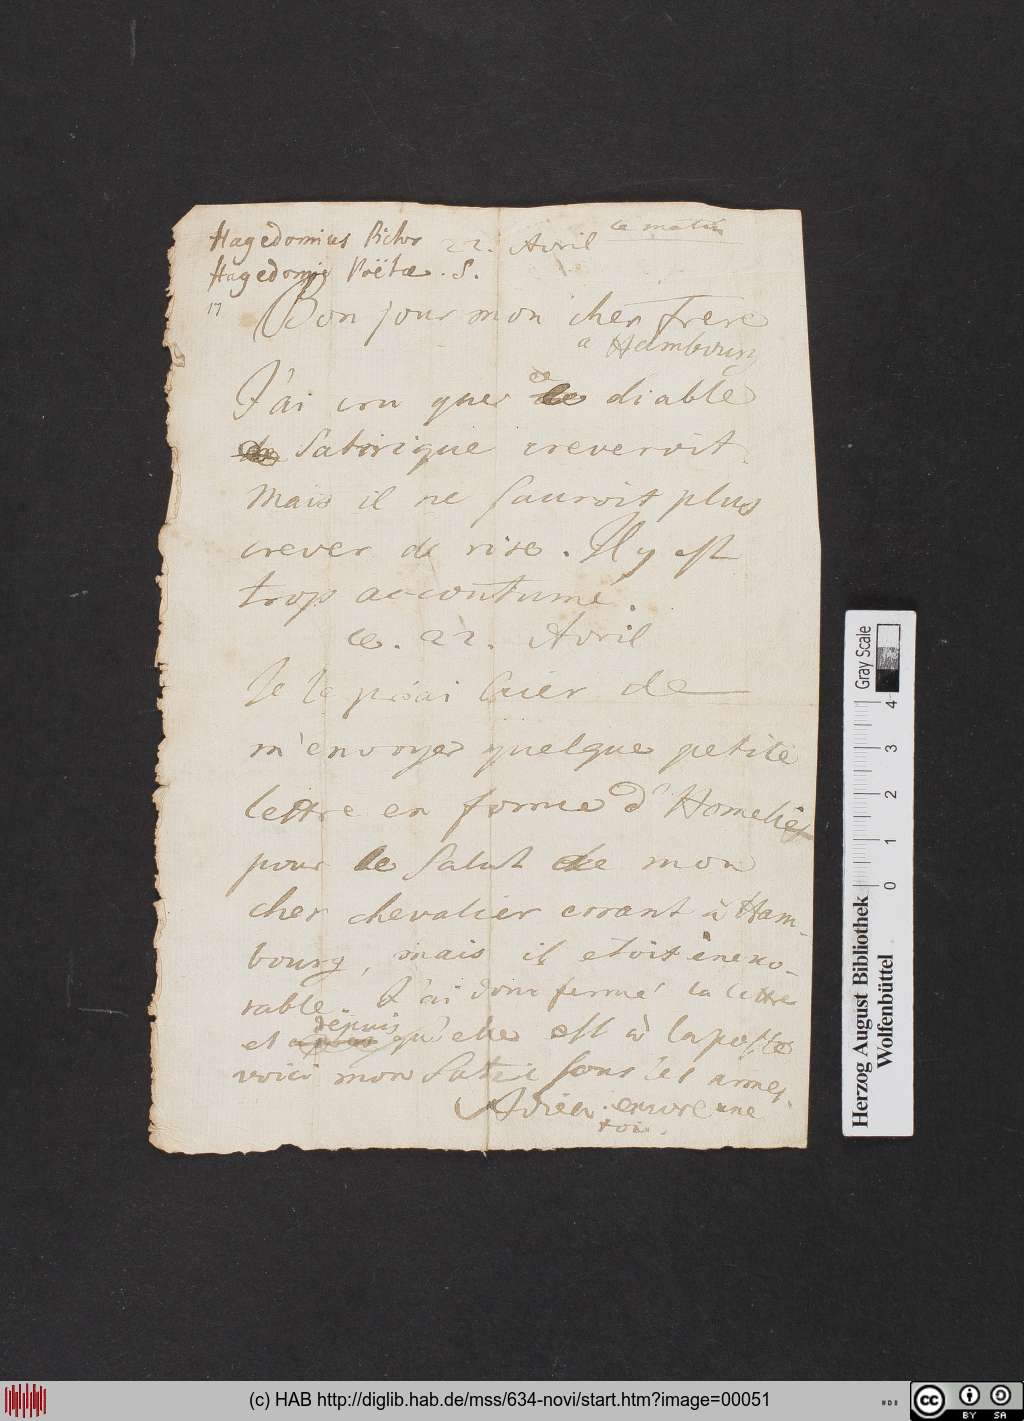 Hagedornius Pictor 22. Avril ce matin
Hagedornio Poëtæ. S.
17
Bon jour mon cher frere
a Hambourg
J'ai cru que ce diable
Satirique creveroit
Mais il ne sauroit plus
crever de rire. Il y est
trop accoutumé.
ce. 22. Avril
Je le priai hier de
m'envoyer quelque petite
lettre en forme d'Homelie
pour le Salut de mon
cher chevalier errant à Ham-
bourg, mais il etoit inexo-
rable. J'ai donc fermé la lettre
depuis
et qu'elle est à la poste
voici mon Satir sous les armes.
Adieu. encore une
fois.
Herzog August Bibliothek
Wolfenbüttel
Gray Scale
0 1 2 3 4
(c) HAB http://diglib.hab.de/mss/634-novi/start.htm?image=00051
cc BY SA